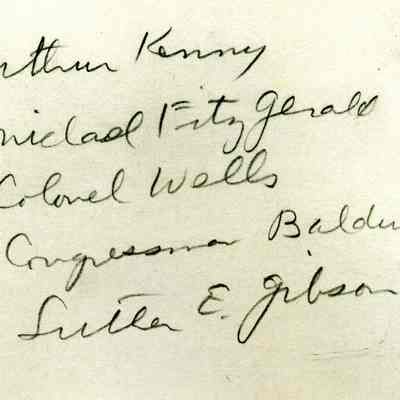 rthur Kenny
michael Fitzgerald
Colonel Wells
Congressman Baldw
Sutter E. Gibson